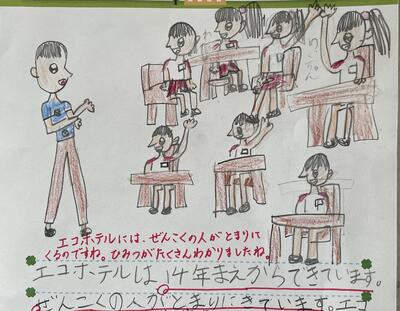 わ
めいちゃん
エコホテルには、ぜんこくの人がとまりに
くるのですね。ひみつがたくさんわかりましたね。
エコホテルは14年まえからできています。
ぜんこくの人がとまりにきています。エコ